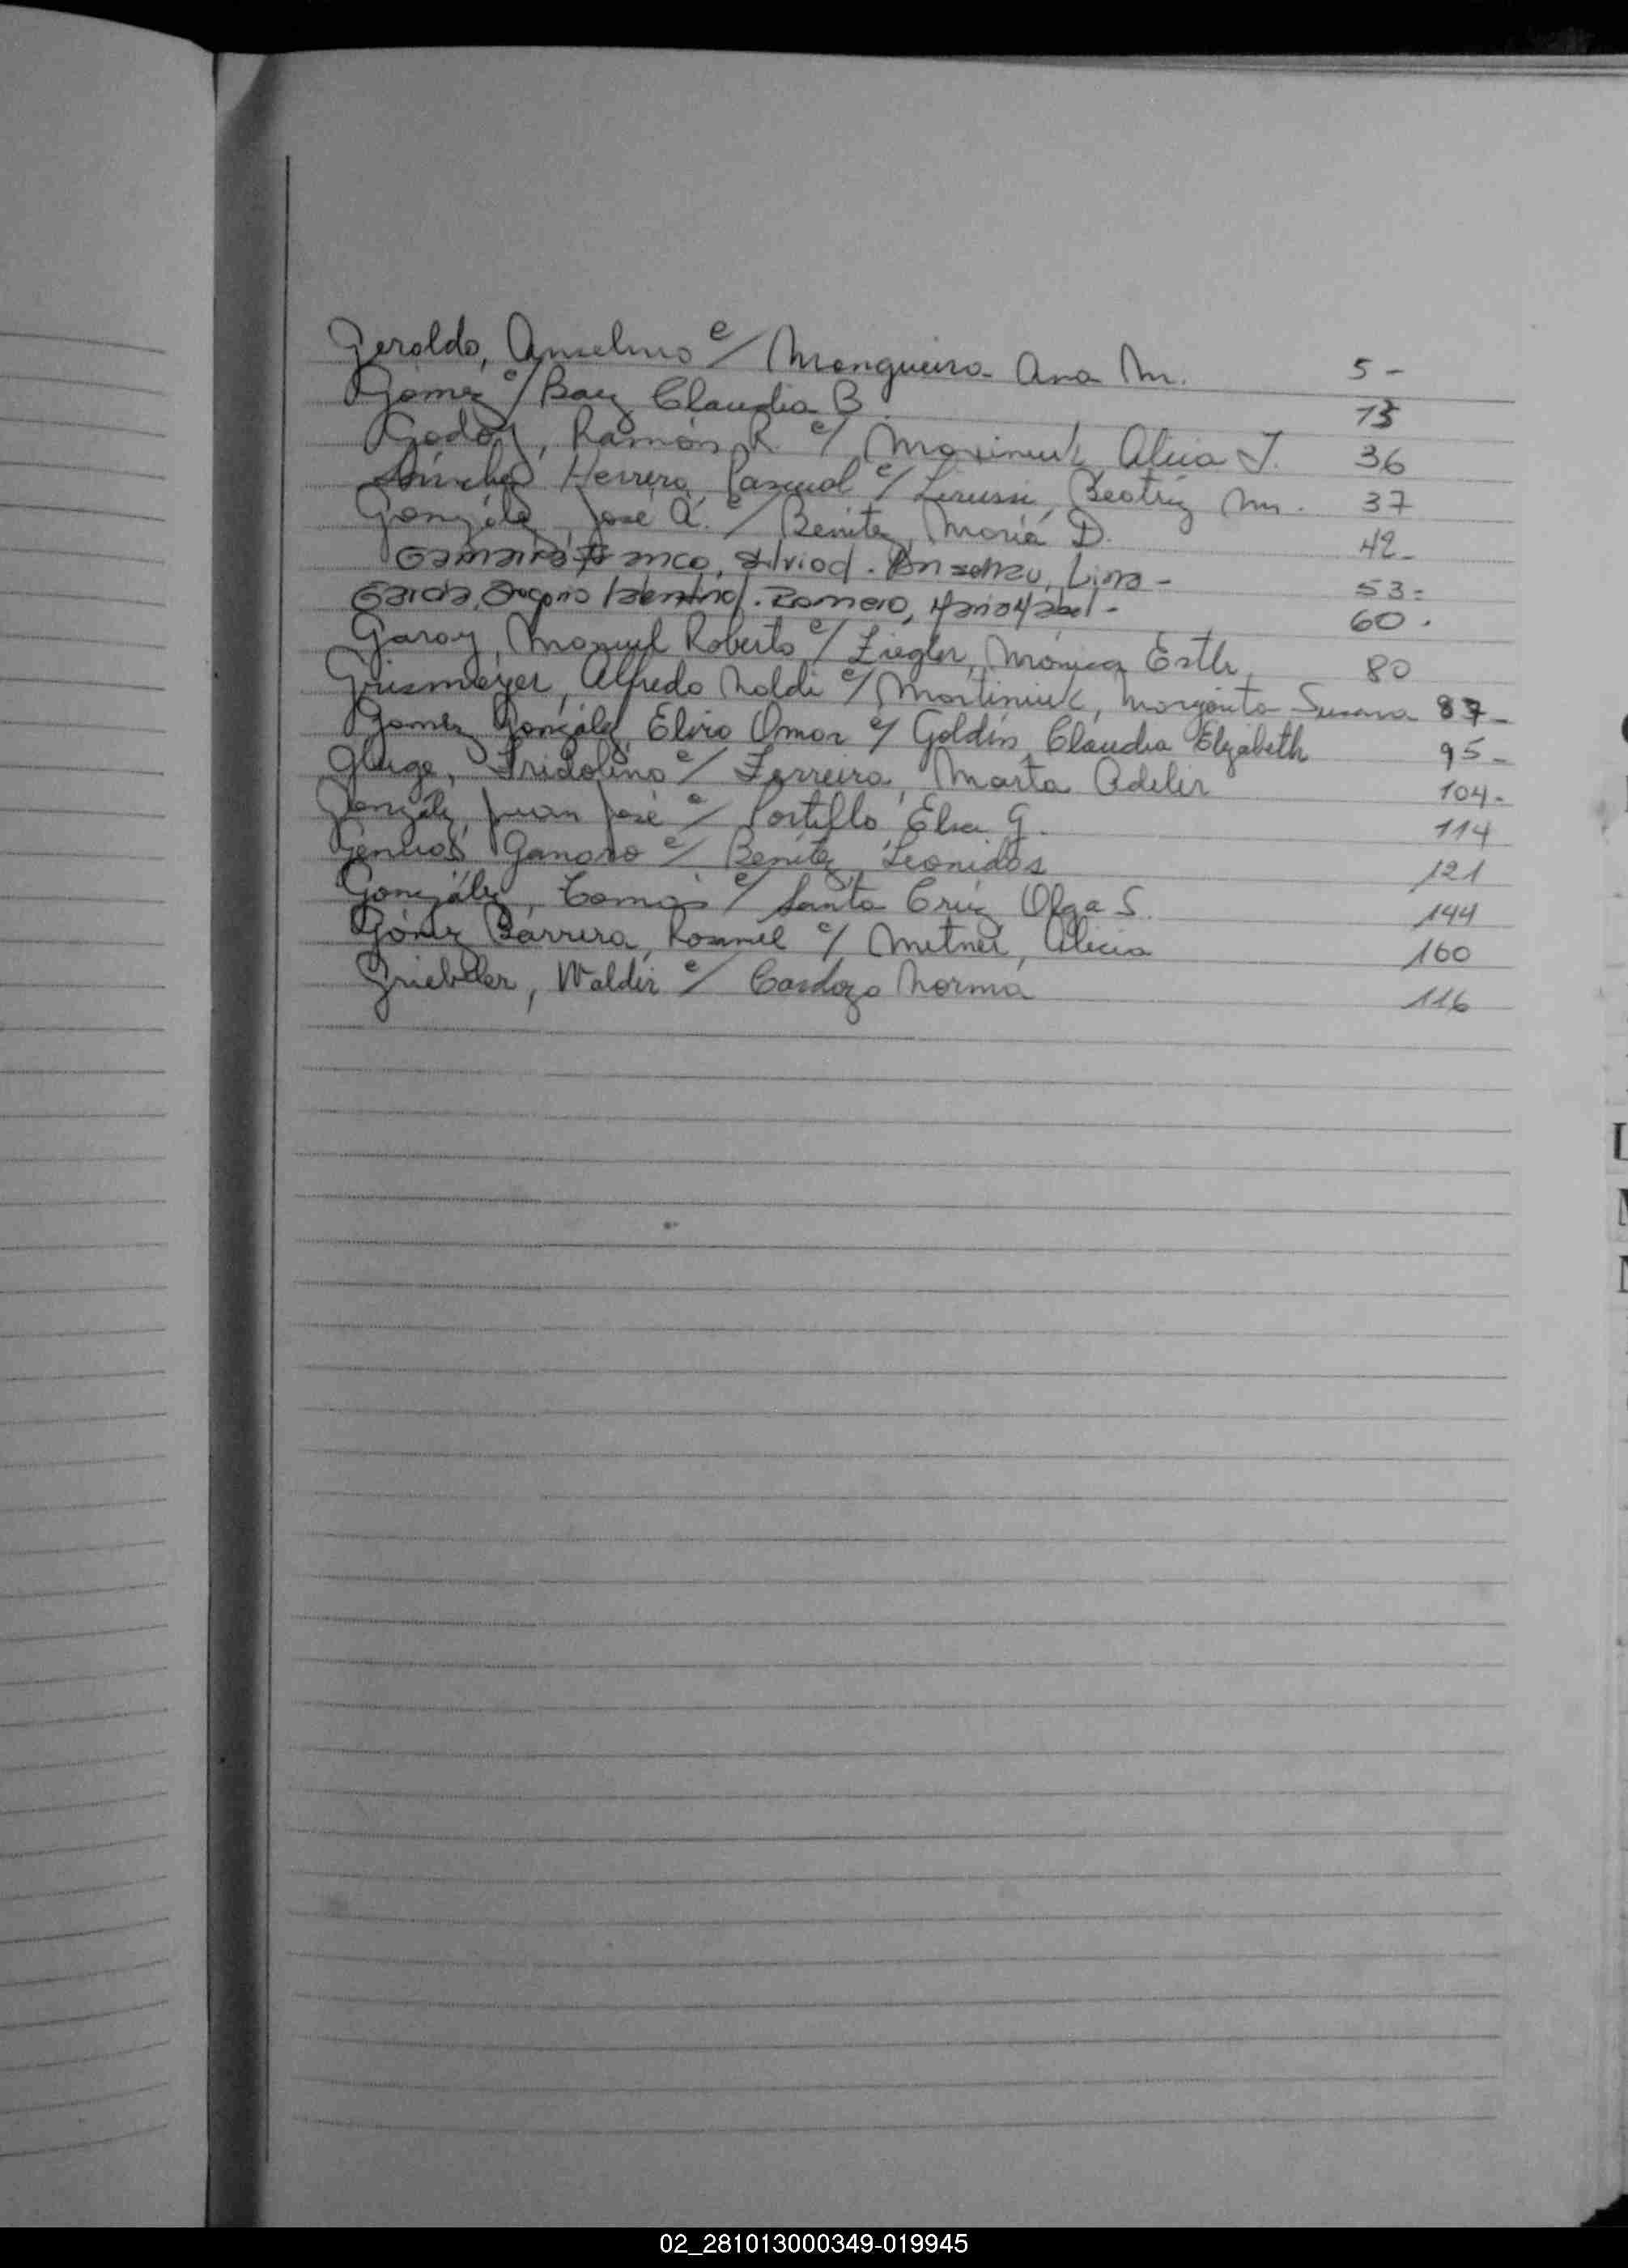 Geraldo, Anselmo c/ Mongueira Ana M. 5 -
Gómez c/ Baez Claudia B. 13
Godoy, Ramón R. c/ Maxiniuk Alicia J. 36
Herrera, Pascual c/ Beatriz M. 37
González, José A. c/ Benitez, María D. 42 -
Lina - 53 =
Garcia, Romero, 60 .
Garay, Manuel Roberto c/ Ziegler, Mónica Esth. 80
Grismeyer, Alfredo Noldi c/ Martiniuk, Margarita Susana 87 -
Gomez González Elvio Omar c/ Goldín, Claudia Elizabeth 95 -
Gluge, Fridolino c/ Ferreira, Marta Adelir 104 -
González, Juan José c/ Portillo Elsa G. 114
Genaro c/ Benítez, Leonidas 121
González, Tomás c/ Santa Cruz Olga S. 144
Gómez Barrera, c/ Alicia 160
Griebeler, Waldir c/ Cardozo Norma 116
02_281013000349-019945